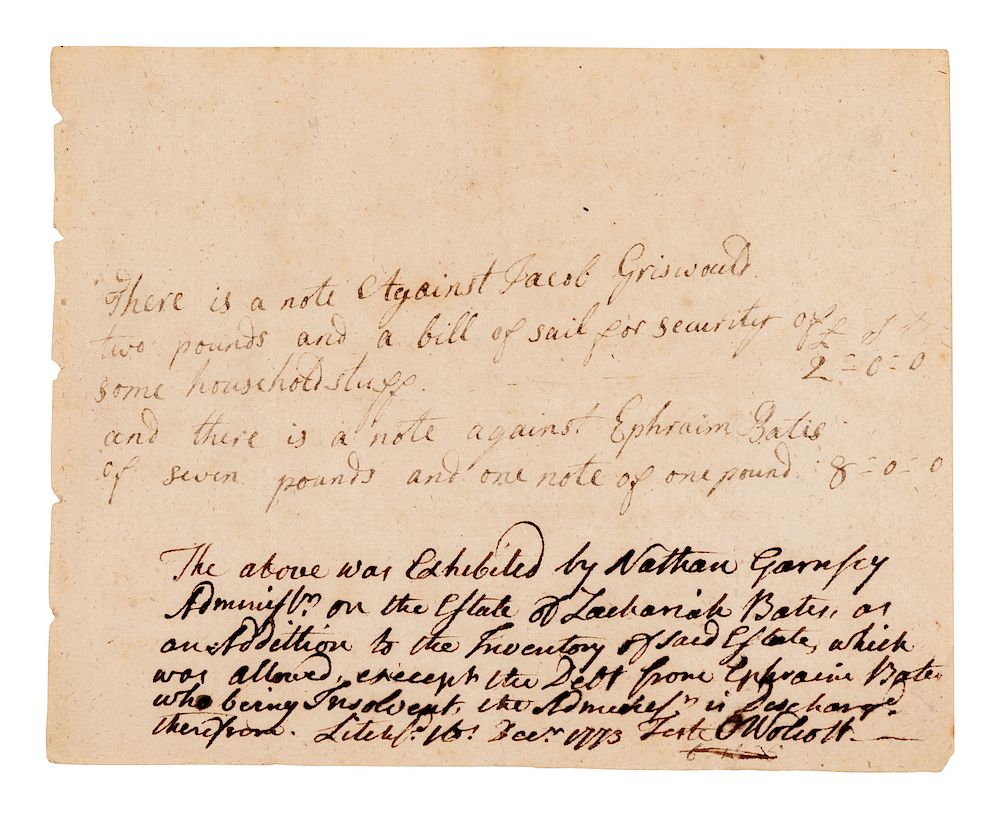 There is a note Against Jacob Griswould
two pounds and a bill of sail for security of £ s d
some houshold stuff. 2 = 0 = 0
and there is a note against Ephraim Batis
of seven pounds and one note of one pound 8 = 0 = 0
The above was Exhibited by Nathan Garnsey
Adminestr. on the Estate of Zachariah Bates, as
an Addittion to the Inventory of said Estate, which
was allowed, except the Debt from Ephraim Bates
who being Insolvent, the Adminestr. is Discharged
therefrom. Litchfd. 16. Decr. 1773 Test O Wolcott